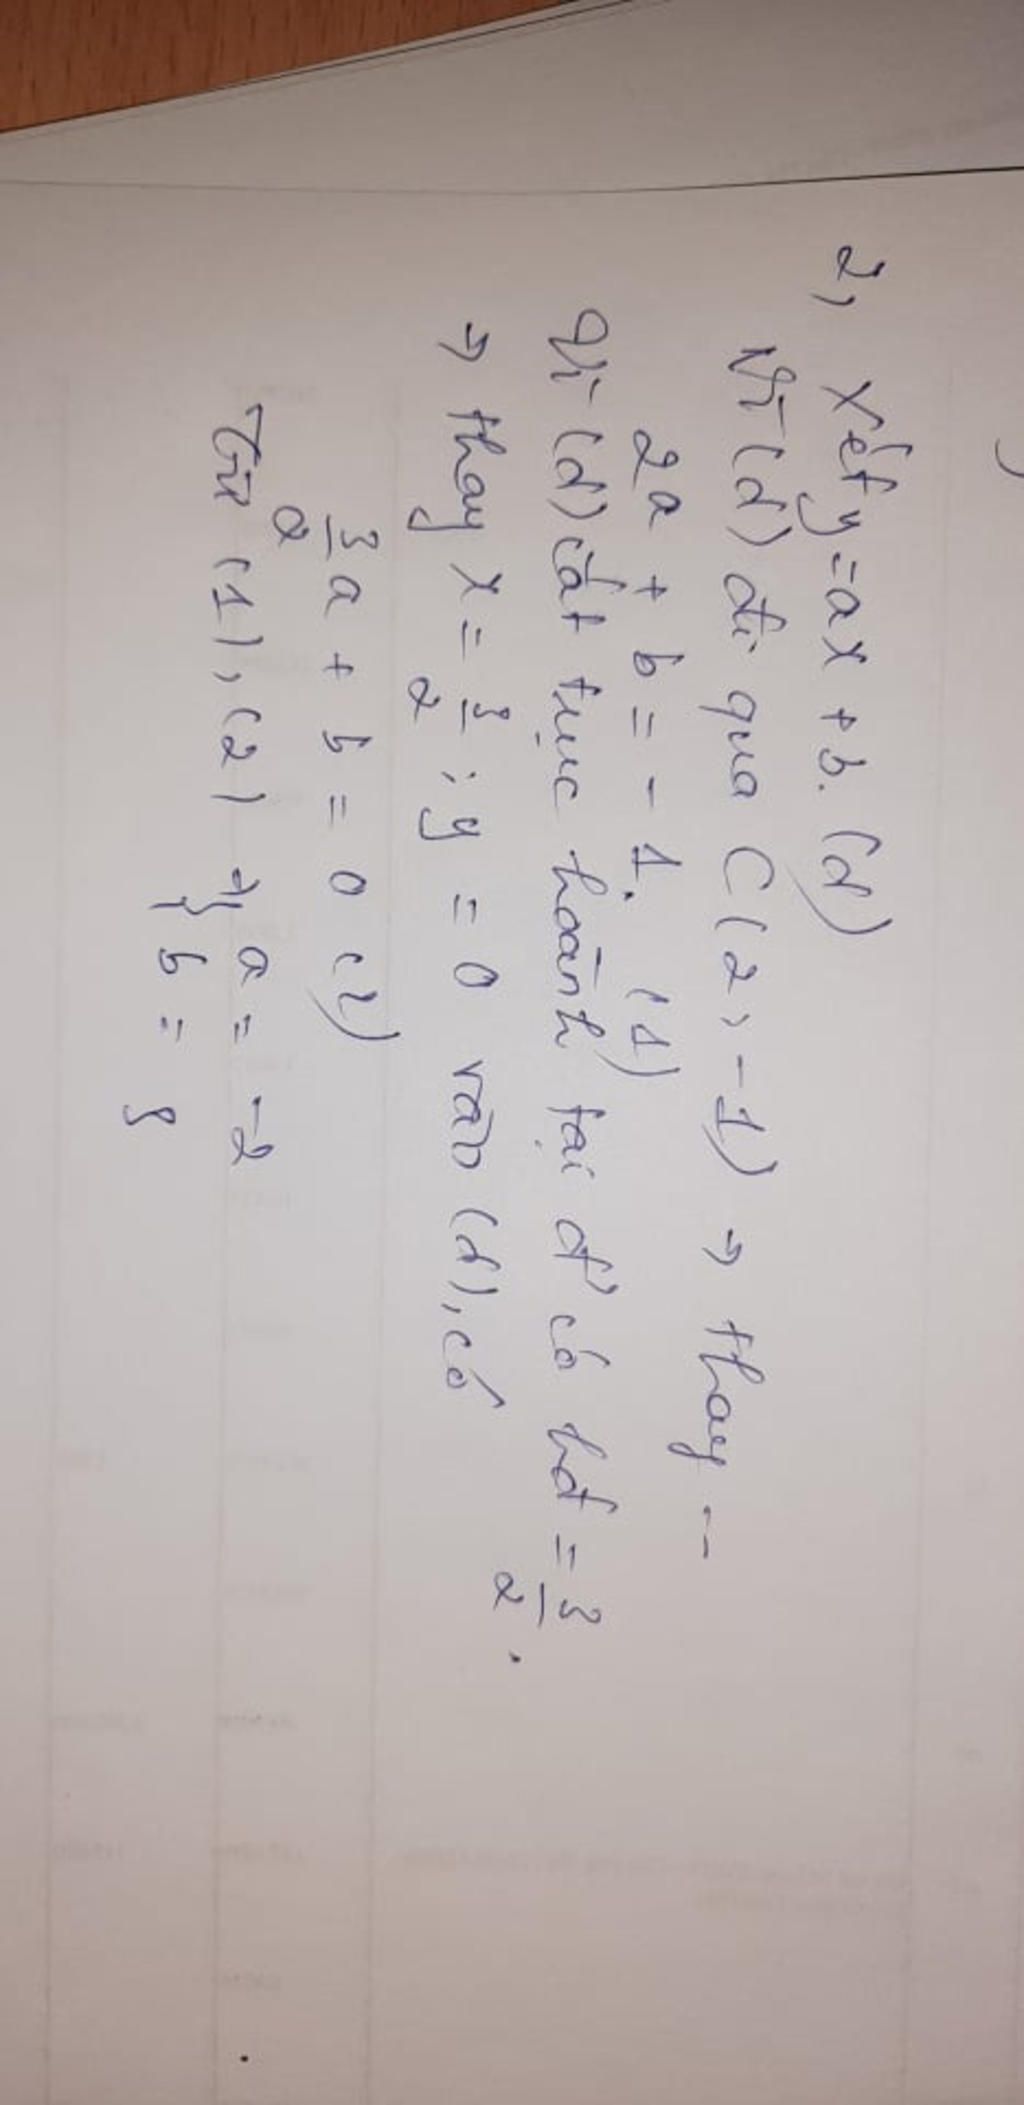 2, Xét y = ax + b. (d)
Vì (d) đi qua C(2, -1) → thay --
2a + b = -1. (1)
Vì (d) cắt trục hoành tại đ' có hđ = 3/2.
→ thay x = 3/2 ; y = 0 vào (d), có
3/2 a + b = 0 (2)
Từ (1), (2) ⇒ { a = -2
{ b = 3